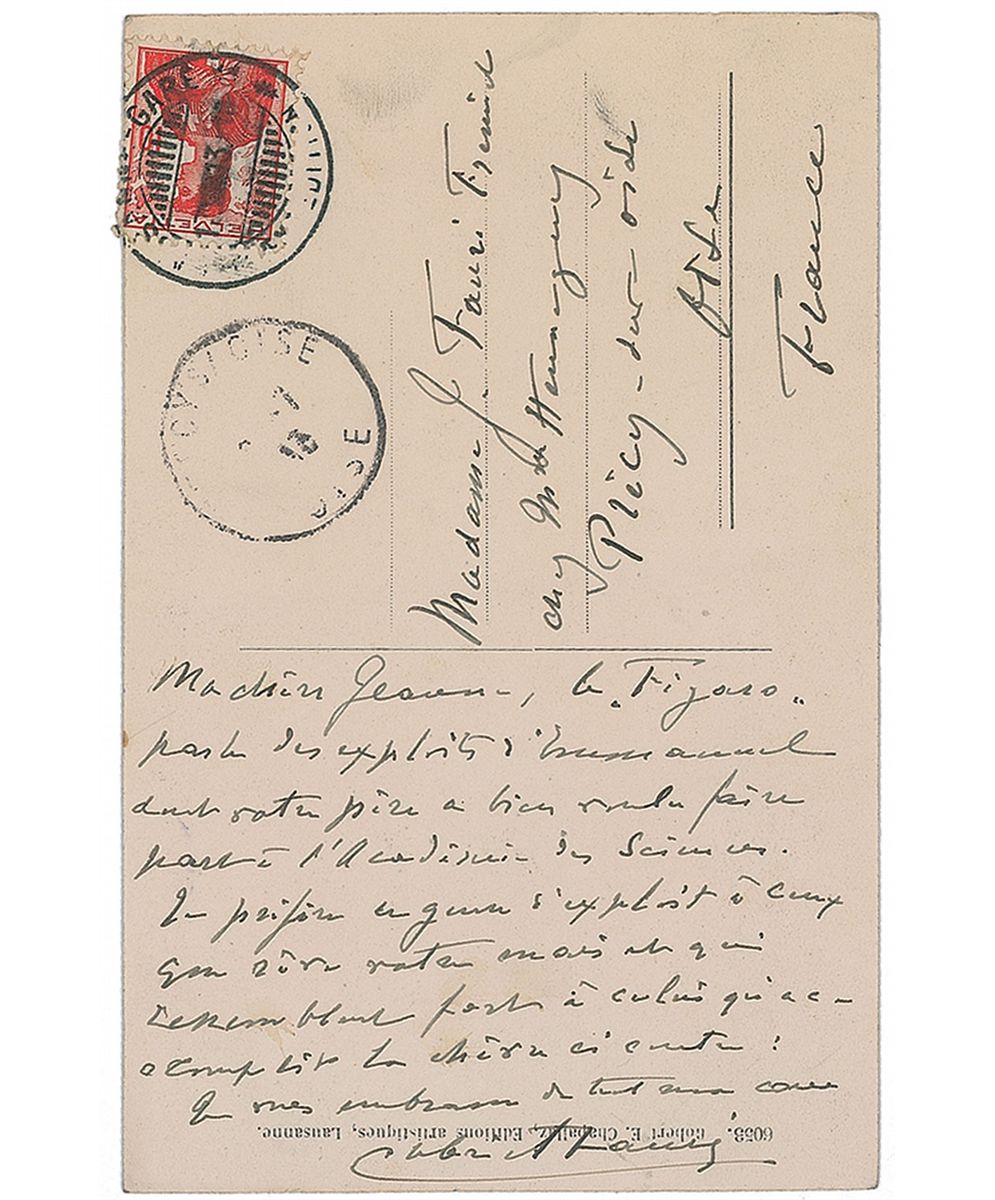 Ma chère Jeanne, le „Figaro„
parle des exploits d'Emmanuel
dont votre père a bien voulu faire
part à l'Académie des Sciences.
Je préfère ce genre d'exploit à ceux
que rêve votre mari et qui
ressemblent fort à celui qu'ac-
complit la chèvre ci contre :
Je vous embrasse de tout mon cœur
Gabriel Fauré
Madame J. Fauré Fremiet
chez
Précy-sur-oise
Oise
France
-GARE
HELVETIA
13
PRÉCY S/ OISE
OISE
6053. Robert E. Chapallaz, Editions artistiques, Lausanne.